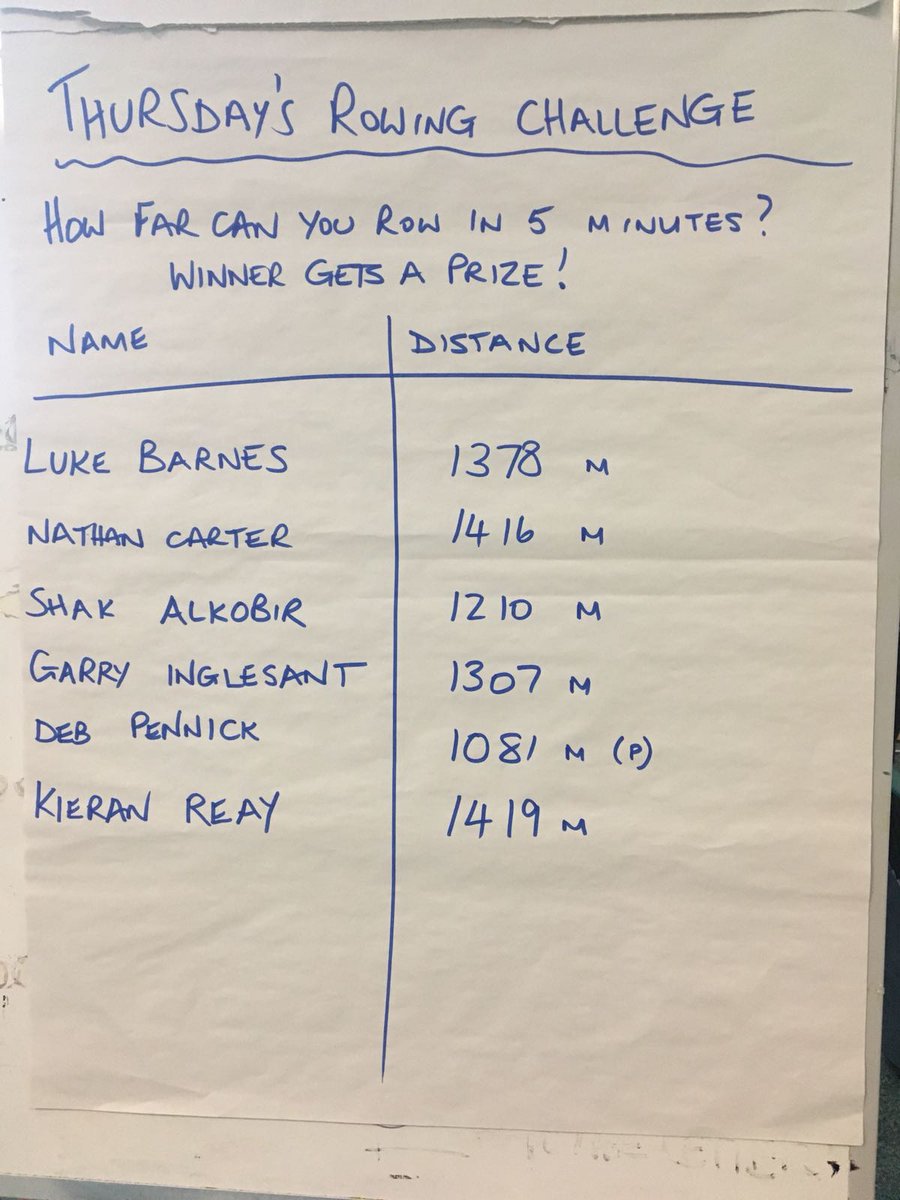 THURSDAY'S ROWING CHALLENGE
HOW FAR CAN YOU ROW IN 5 MINUTES?
WINNER GETS A PRIZE!
NAME DISTANCE
LUKE BARNES 1378 M
NATHAN CARTER 1416 M
SHAK ALKOBIR 1210 M
GARRY INGLESANT 1307 M
DEB PENNICK 1081 M (P)
KIERAN REAY 1419 M